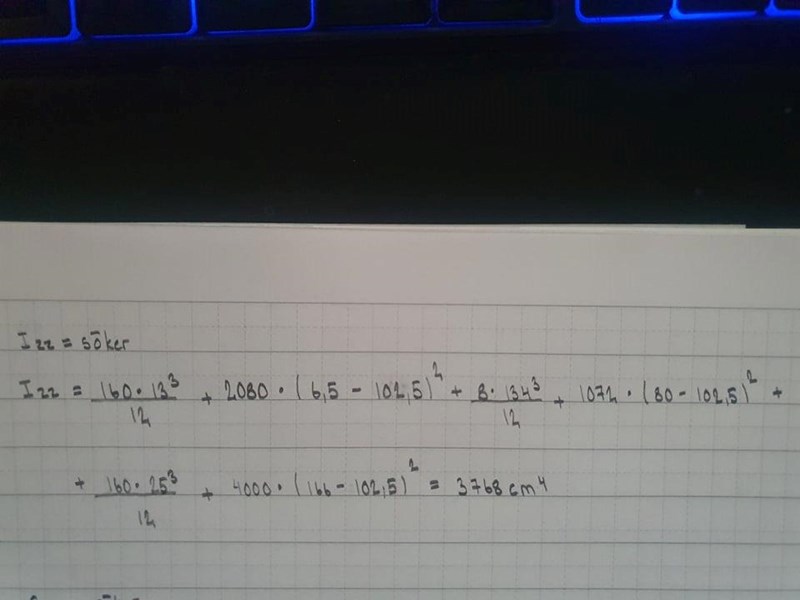 Izz = söker
Izz = 160 · 13³/12 + 2080 · (6,5 - 102,5)² + 8 · 134³/12 + 1072 · (80 - 102,5)² +
+ 160 · 25³/12 + 4000 · (166 - 102,5)² = 3768 cm⁴